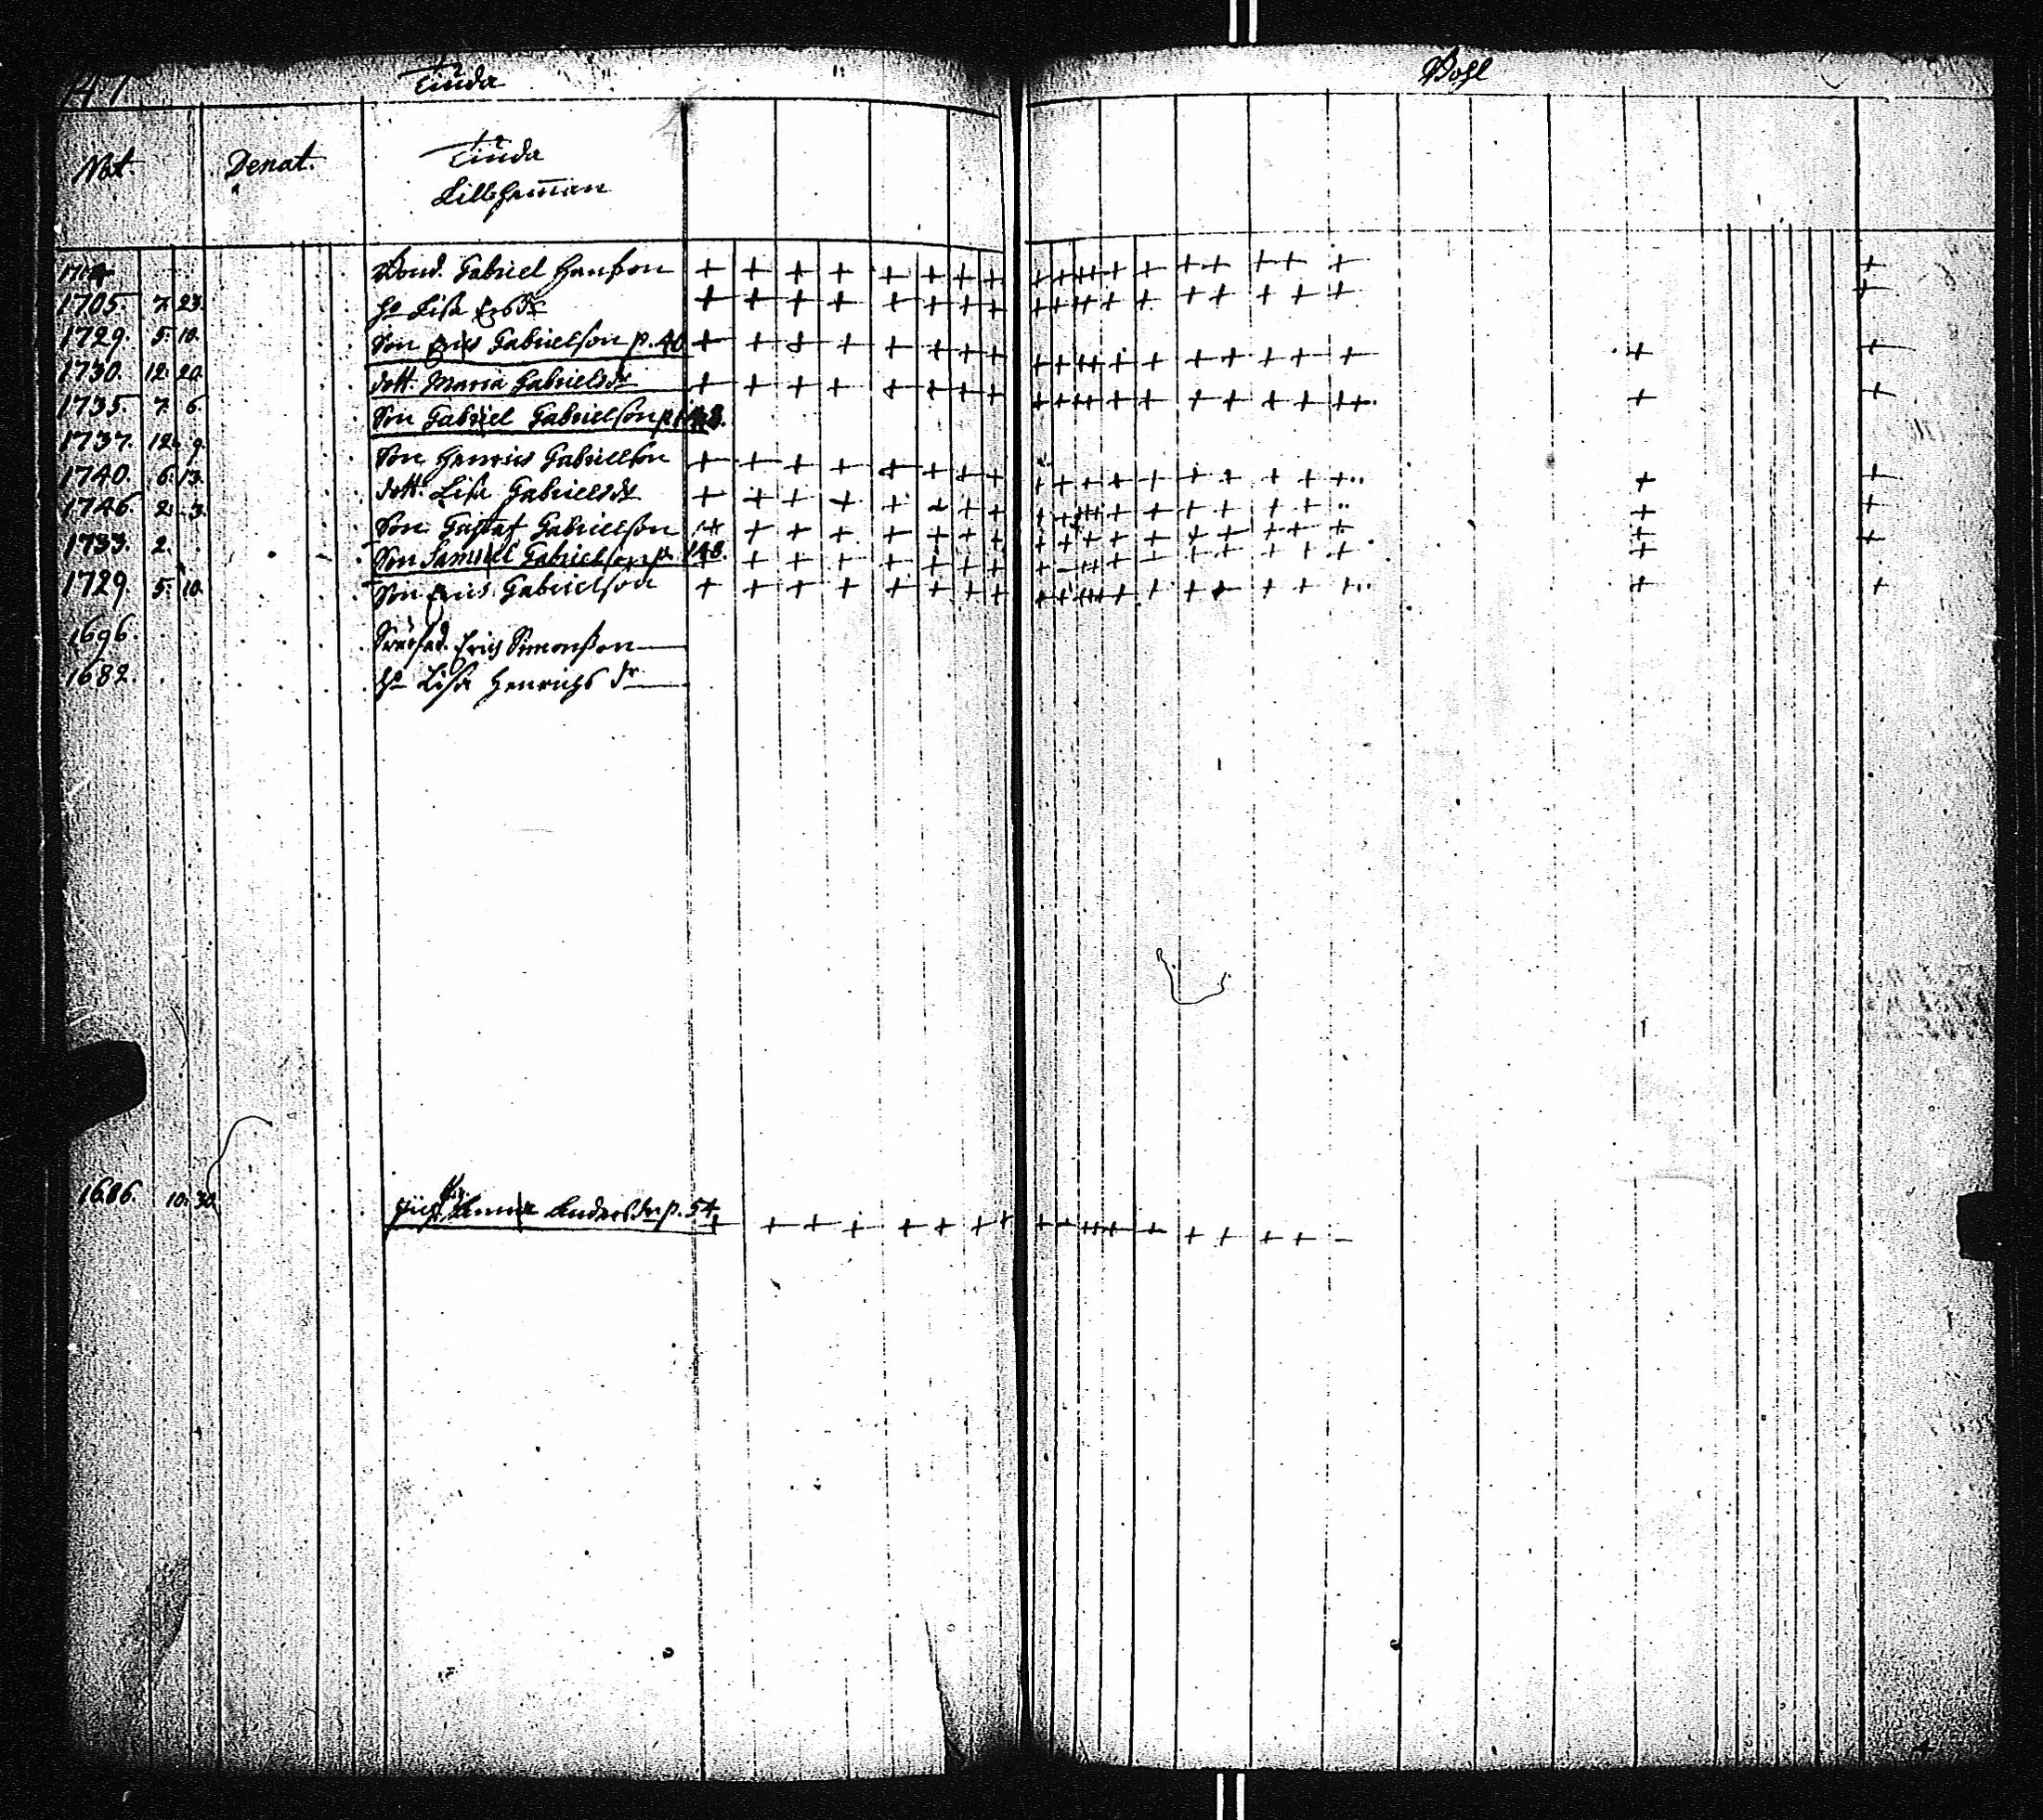 147 Tiuda Bohl
Nat. Denat. Tiuda
Lillhemman
1704 Bond. Gabriel Hanßon
1705. 7. 23. Ho Lisa Ersdr
1729. 5. 10. Son Eric Gabrielson p. 40
1730. 12. 20. dott. Maria Gabrielsdr
1735. 7. 6. Son Gabriel Gabrielson p. 148.
1737. 12. 9. Son Henric Gabrielson
1740. 6. 13. dott. Lisa Gabrielsdr
1746. 2. 3. Son Gustaf Gabrielson
1733. 2. Son Samuel Gabrielson p. 148.
1729. 5. 10. Son Eric Gabrielson
1696. Swerfad. Erich Simonßon
1682. Ho Lisa Henrichs dr
1686. 10. 30. Anna Andersdr p. 54